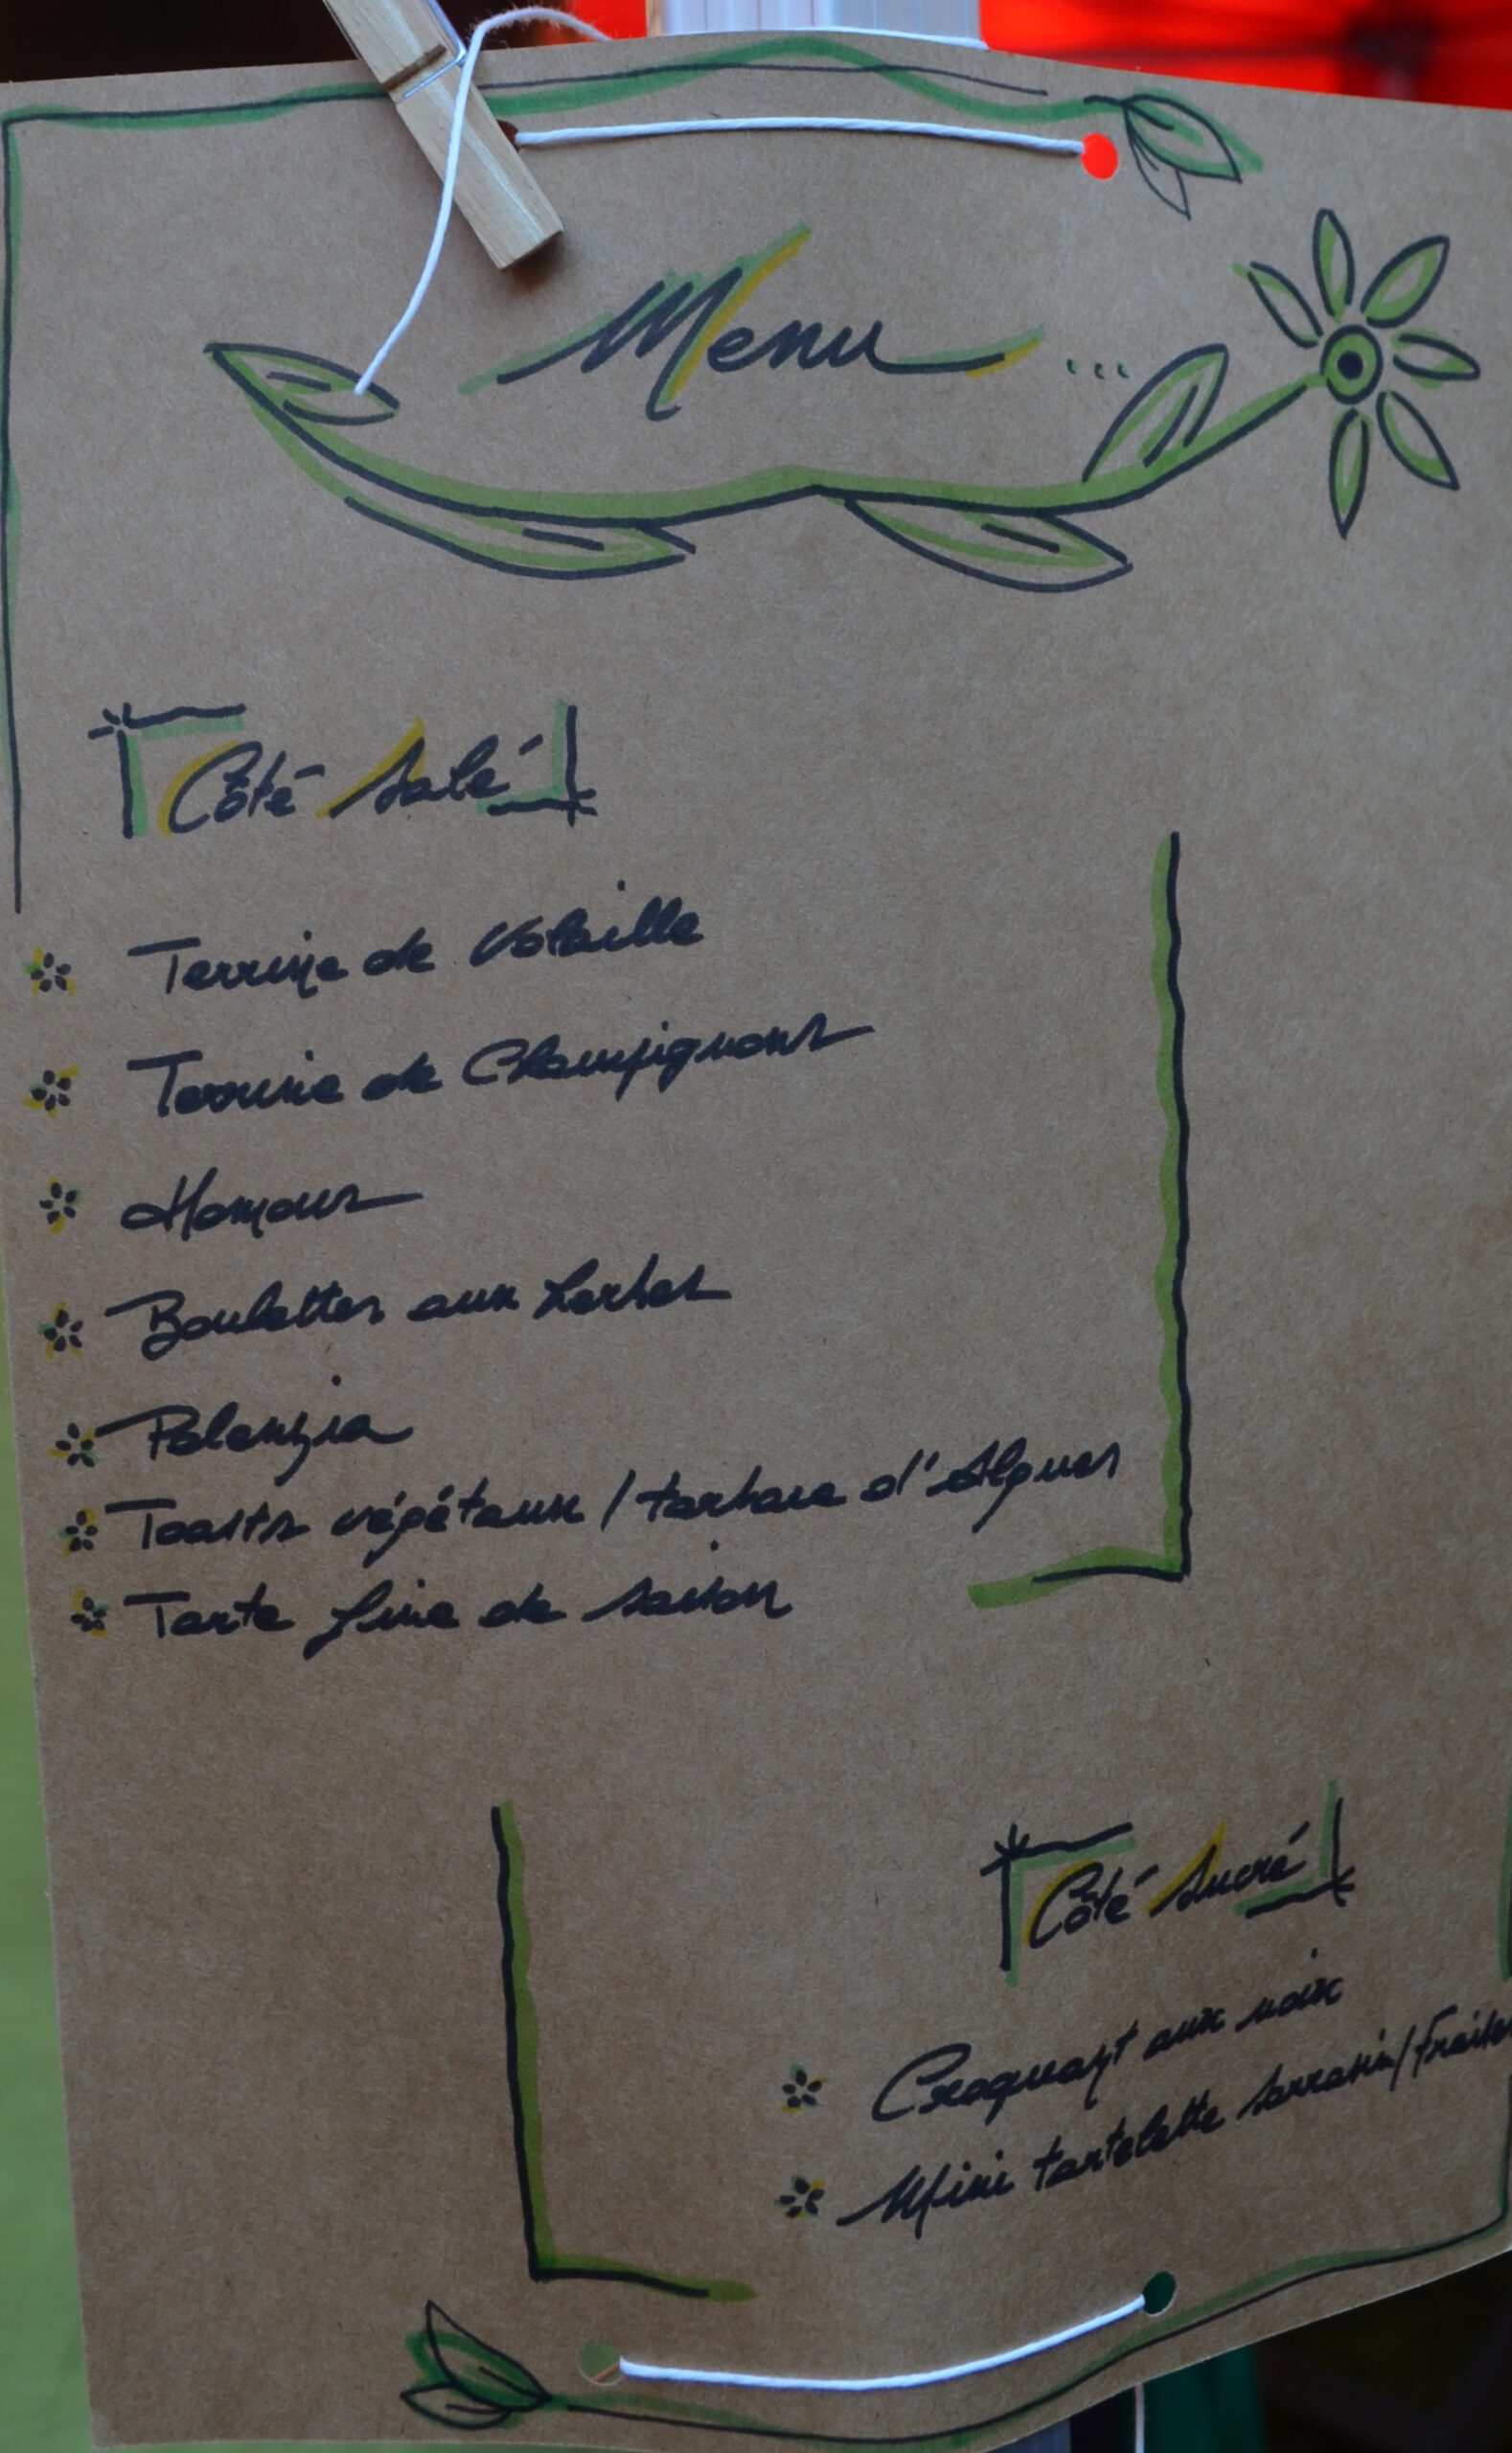 Menu ...
Côté salé
Terrine de Volaille
Terrine de Champignons
Homous
Boulettes aux herbes
Polenzia
Toasts végétaux / tartare d'Algues
Tarte fine de saison
Côté sucré
Croquant aux noix
Mini tartelette sarrasin/fraises